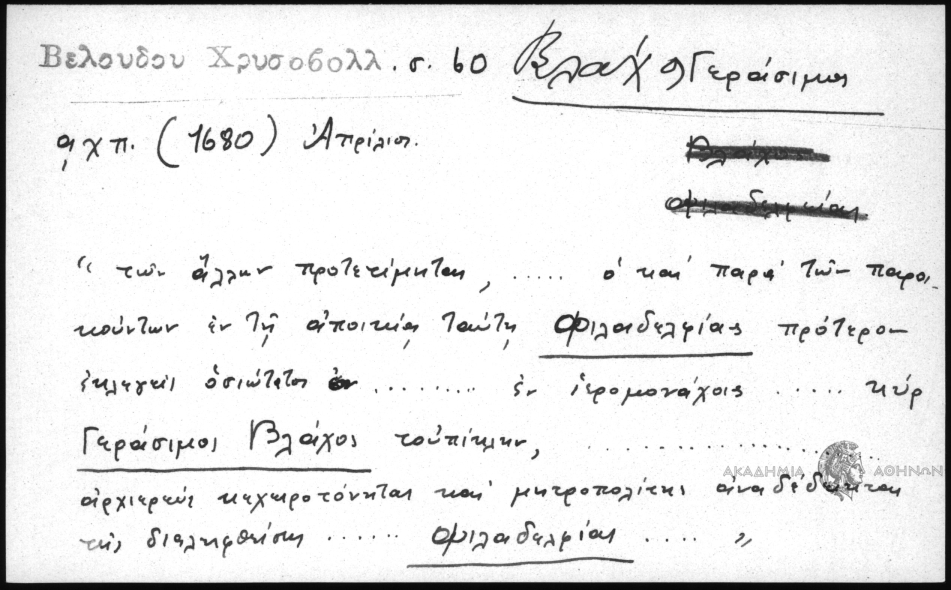 Βελουδου Χρυσοβολλ. σ. 60 Βλάχος Γεράσιμος
͵αχπ. (1680) Ἀπρίλιος.
Βλάχος
Φιλαδελφείας
“ τῶν ἄλλων προτετίμηται, ..... ὁ καὶ παρὰ τῶν παροι-
κούντων ἐν τῇ ἀποικίᾳ ταύτῃ Φιλαδελφίας πρότερον
ἐκλεγεὶς ὁσιώτατος ......... ἐν ἱερομονάχοις ..... κύρ
Γεράσιμος Βλάχος τοὐπίκλην, ..................
ἀρχιερεὺς κεχειροτόνηται καὶ μητροπολίτης ἀναδέδεικται
τῆς διαληφθείσης ...... Φιλαδελφίας .... „
ΑΚΑΔΗΜΙΑ ΑΘΗΝΩΝ